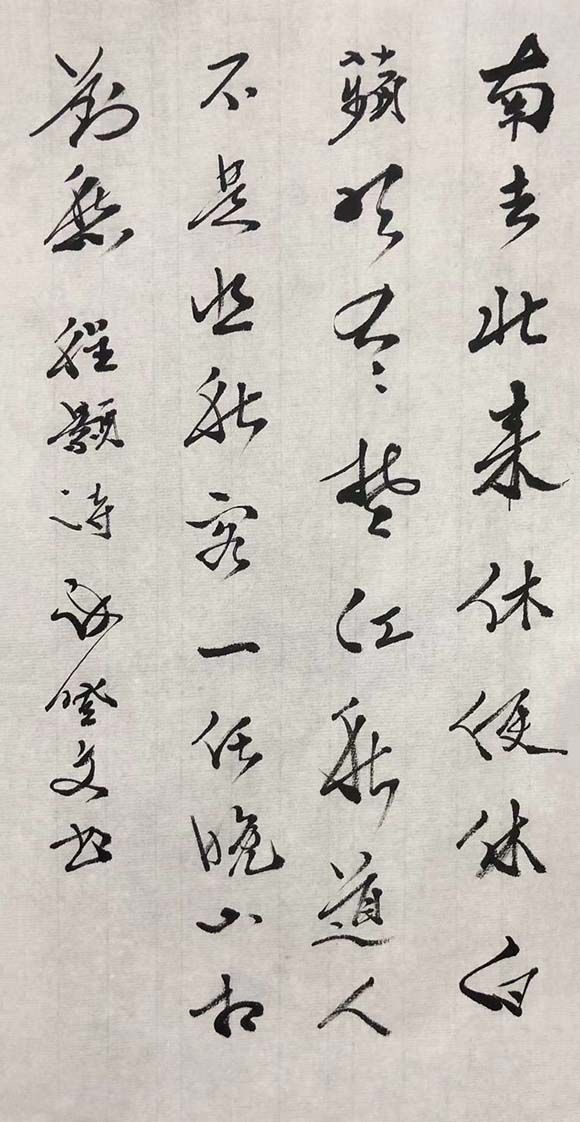 南去北来休便休白
蘋吹尽楚江秋道人
不是悲秋客一任晚山相
對愁 程顥诗 文书